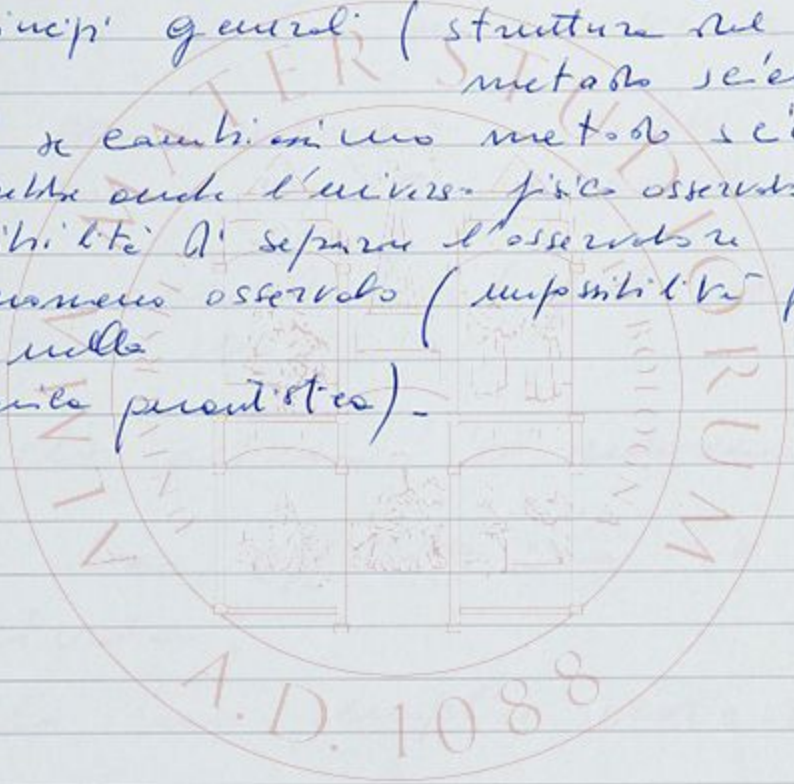 incipi generali (struttura del
metodo scie
se cambiassimo metodo sci
ebbe anche l'universo fisico osservato
ibilità di separare l'osservatore
nomeno osservato (impossibilità p
nella
quantistica)-
ALMA MATER STUDIORUM
A.D. 1088